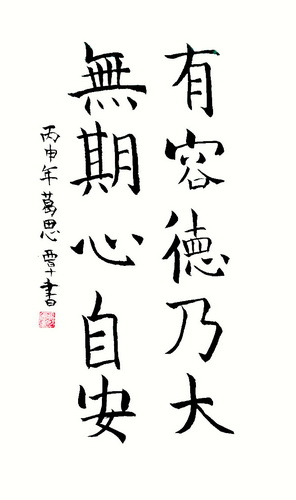 有容德乃大
無期心自安
丙申年葛思覃書